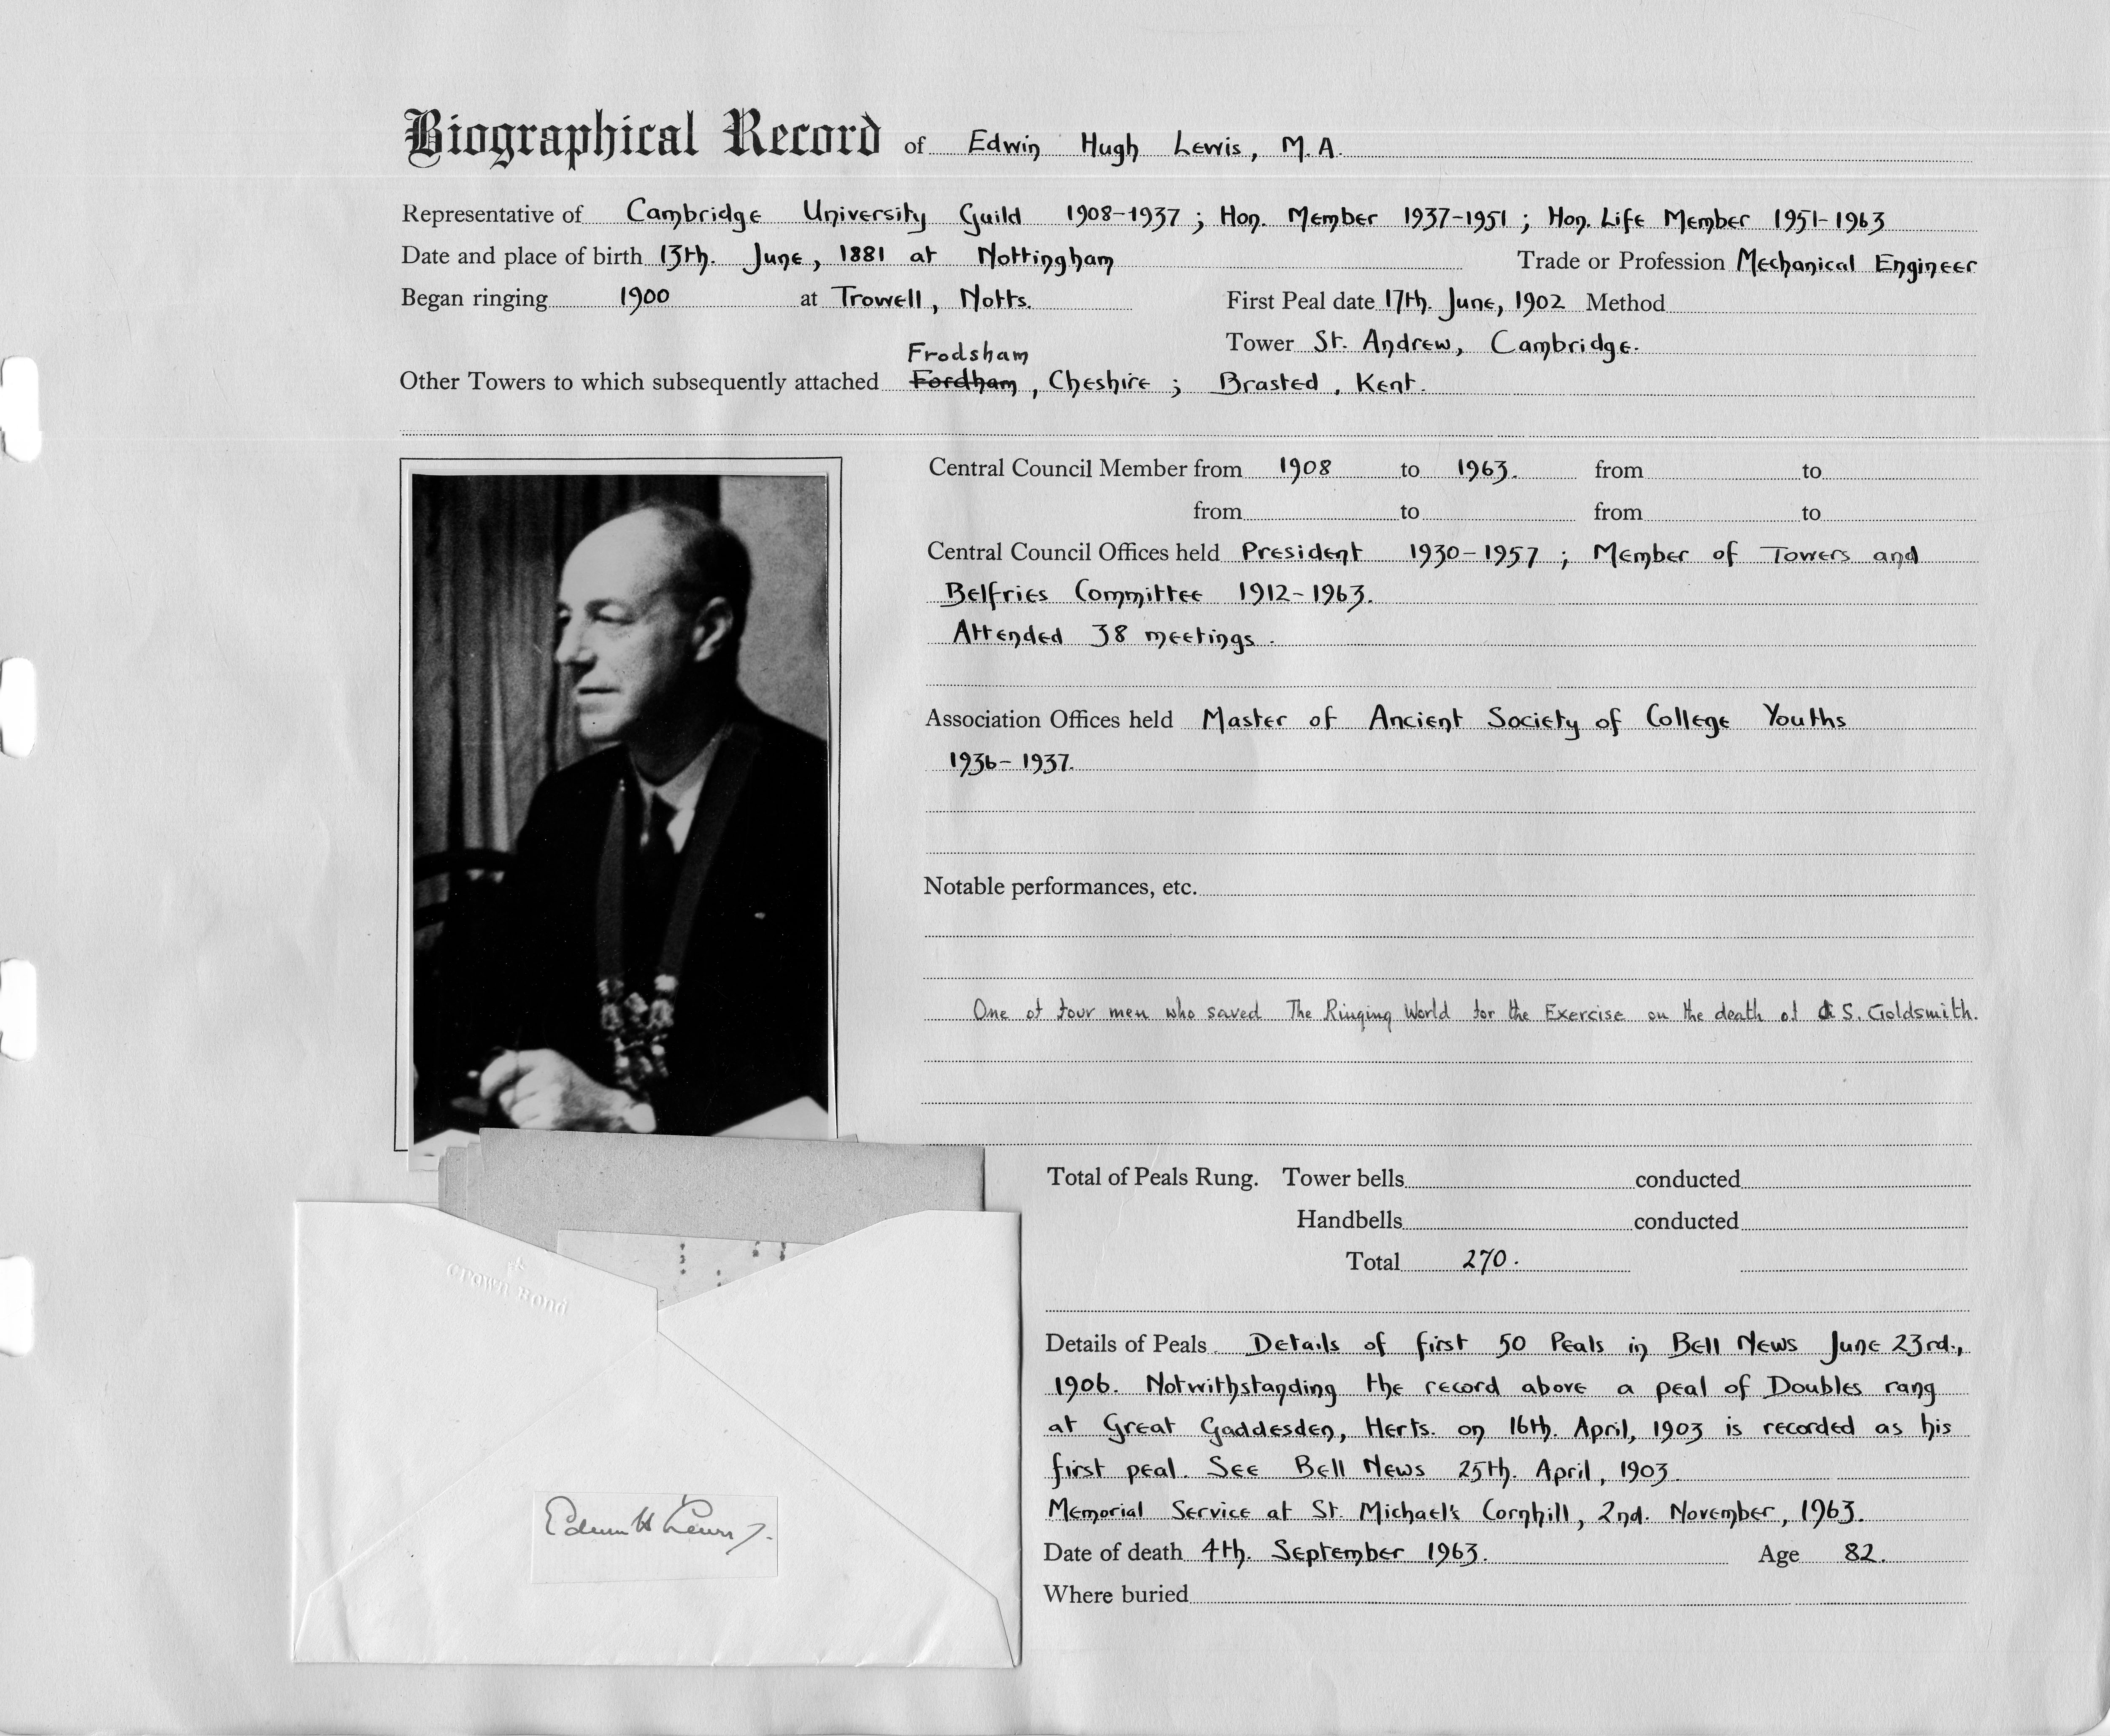 Biographical Record of Edwin Hugh Lewis, M.A.
Representative of Cambridge University Guild 1908-1937 ; Hon. Member 1937-1951 ; Hon. Life Member 1951-1963
Date and place of birth 13th. June, 1881 at Nottingham Trade or Profession Mechanical Engineer
Began ringing 1900 at Trowell, Notts. First Peal date 17th. June, 1902 Method
Tower St. Andrew, Cambridge.
Frodsham
Other Towers to which subsequently attached Fordham, Cheshire ; Brasted, Kent.
Central Council Member from 1908 to 1963. from to
from to from to
Central Council Offices held President 1930-1957 ; Member of Towers and
Belfries Committee 1912-1963.
Attended 38 meetings.
Association Offices held Master of Ancient Society of College Youths
1936-1937.
Notable performances, etc.
One of four men who saved The Ringing World for the Exercise on the death of S. Goldsmith.
Total of Peals Rung. Tower bells conducted
Handbells conducted
Total 270.
Crown Bond
Details of Peals Details of first 50 Peals in Bell News June 23rd.,
1906. Notwithstanding the record above a peal of Doubles rang
at Great Gaddesden, Herts. on 16th. April, 1903 is recorded as his
first peal. See Bell News 25th. April, 1903.
Memorial Service at St. Michael's Cornhill, 2nd. November, 1963.
Edwin H Lewis
Date of death 4th. September 1963. Age 82.
Where buried